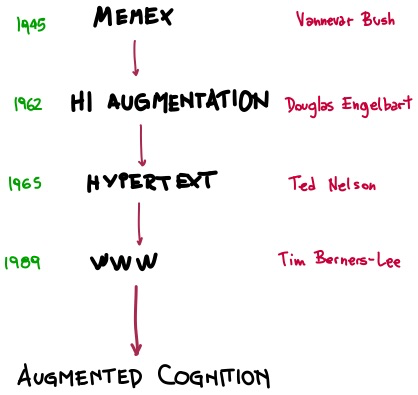 1945 MEMEX Vannevar Bush
1962 HI AUGMENTATION Douglas Engelbart
1965 HYPERTEXT Ted Nelson
1989 WWW Tim Berners-Lee
AUGMENTED COGNITION